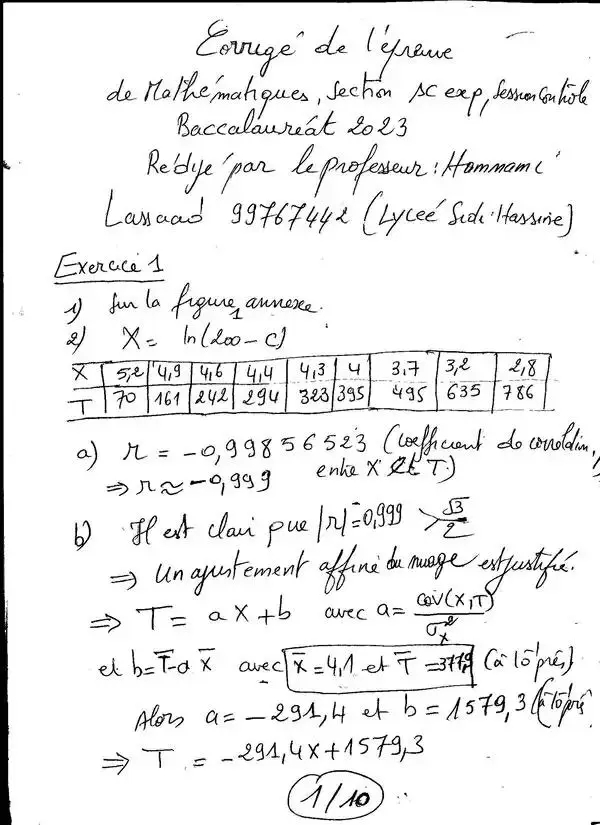 Corrigé de l'épreuve
de Mathématiques, section sc exp, session contrôle
Baccalauréat 2023
Rédigé par le professeur : Hammami
Lassaad 99767442 (Lycée Sidi Hassine)
Exercice 1
1) Sur la figure 1 annexe.
2) X = ln(200-C)
X 5,2 4,9 4,6 4,4 4,3 4 3,7 3,2 2,8
T 70 161 242 294 323 395 495 635 786
a) r = -0,99856523 (coefficient de corrélation
entre X et T)
⇒ r ≈ -0,999
b) Il est clair que |r| = 0,999 > √3/2
⇒ Un ajustement affine du nuage est justifié.
⇒ T = aX + b avec a = cov(X,T)/σx²
et b = T̄ - a X̄ avec X̄ = 4,1 et T̄ = 377,9 (à 10⁻¹ près)
Alors a = -291,4 et b = 1579,3 (à 10⁻¹ près
⇒ T = -291,4x + 1579,3
1/10